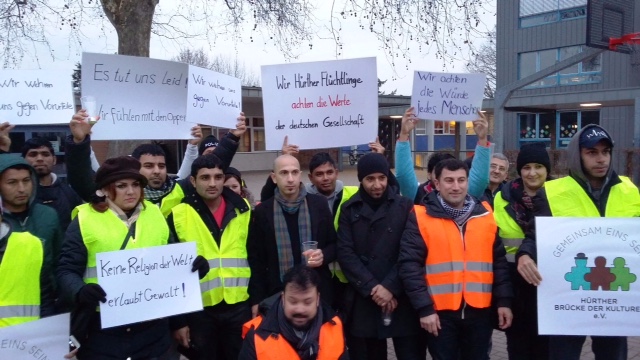 Wir wehren
uns gegen Vorurteile
Es tut uns Leid!
Wir fühlen mit den Opfern
Wir wehren uns
gegen Vorurteile!
Wir Hürther Flüchtlinge
achten die Werte
der deutschen Gesellschaft
Wir achten
die Würde
jedes Menschen
Keine Religion der Welt
erlaubt Gewalt!
GEMEINSAM EINS SEIN
HÜRTHER
BRÜCKE DER KULTUREN
e.V.